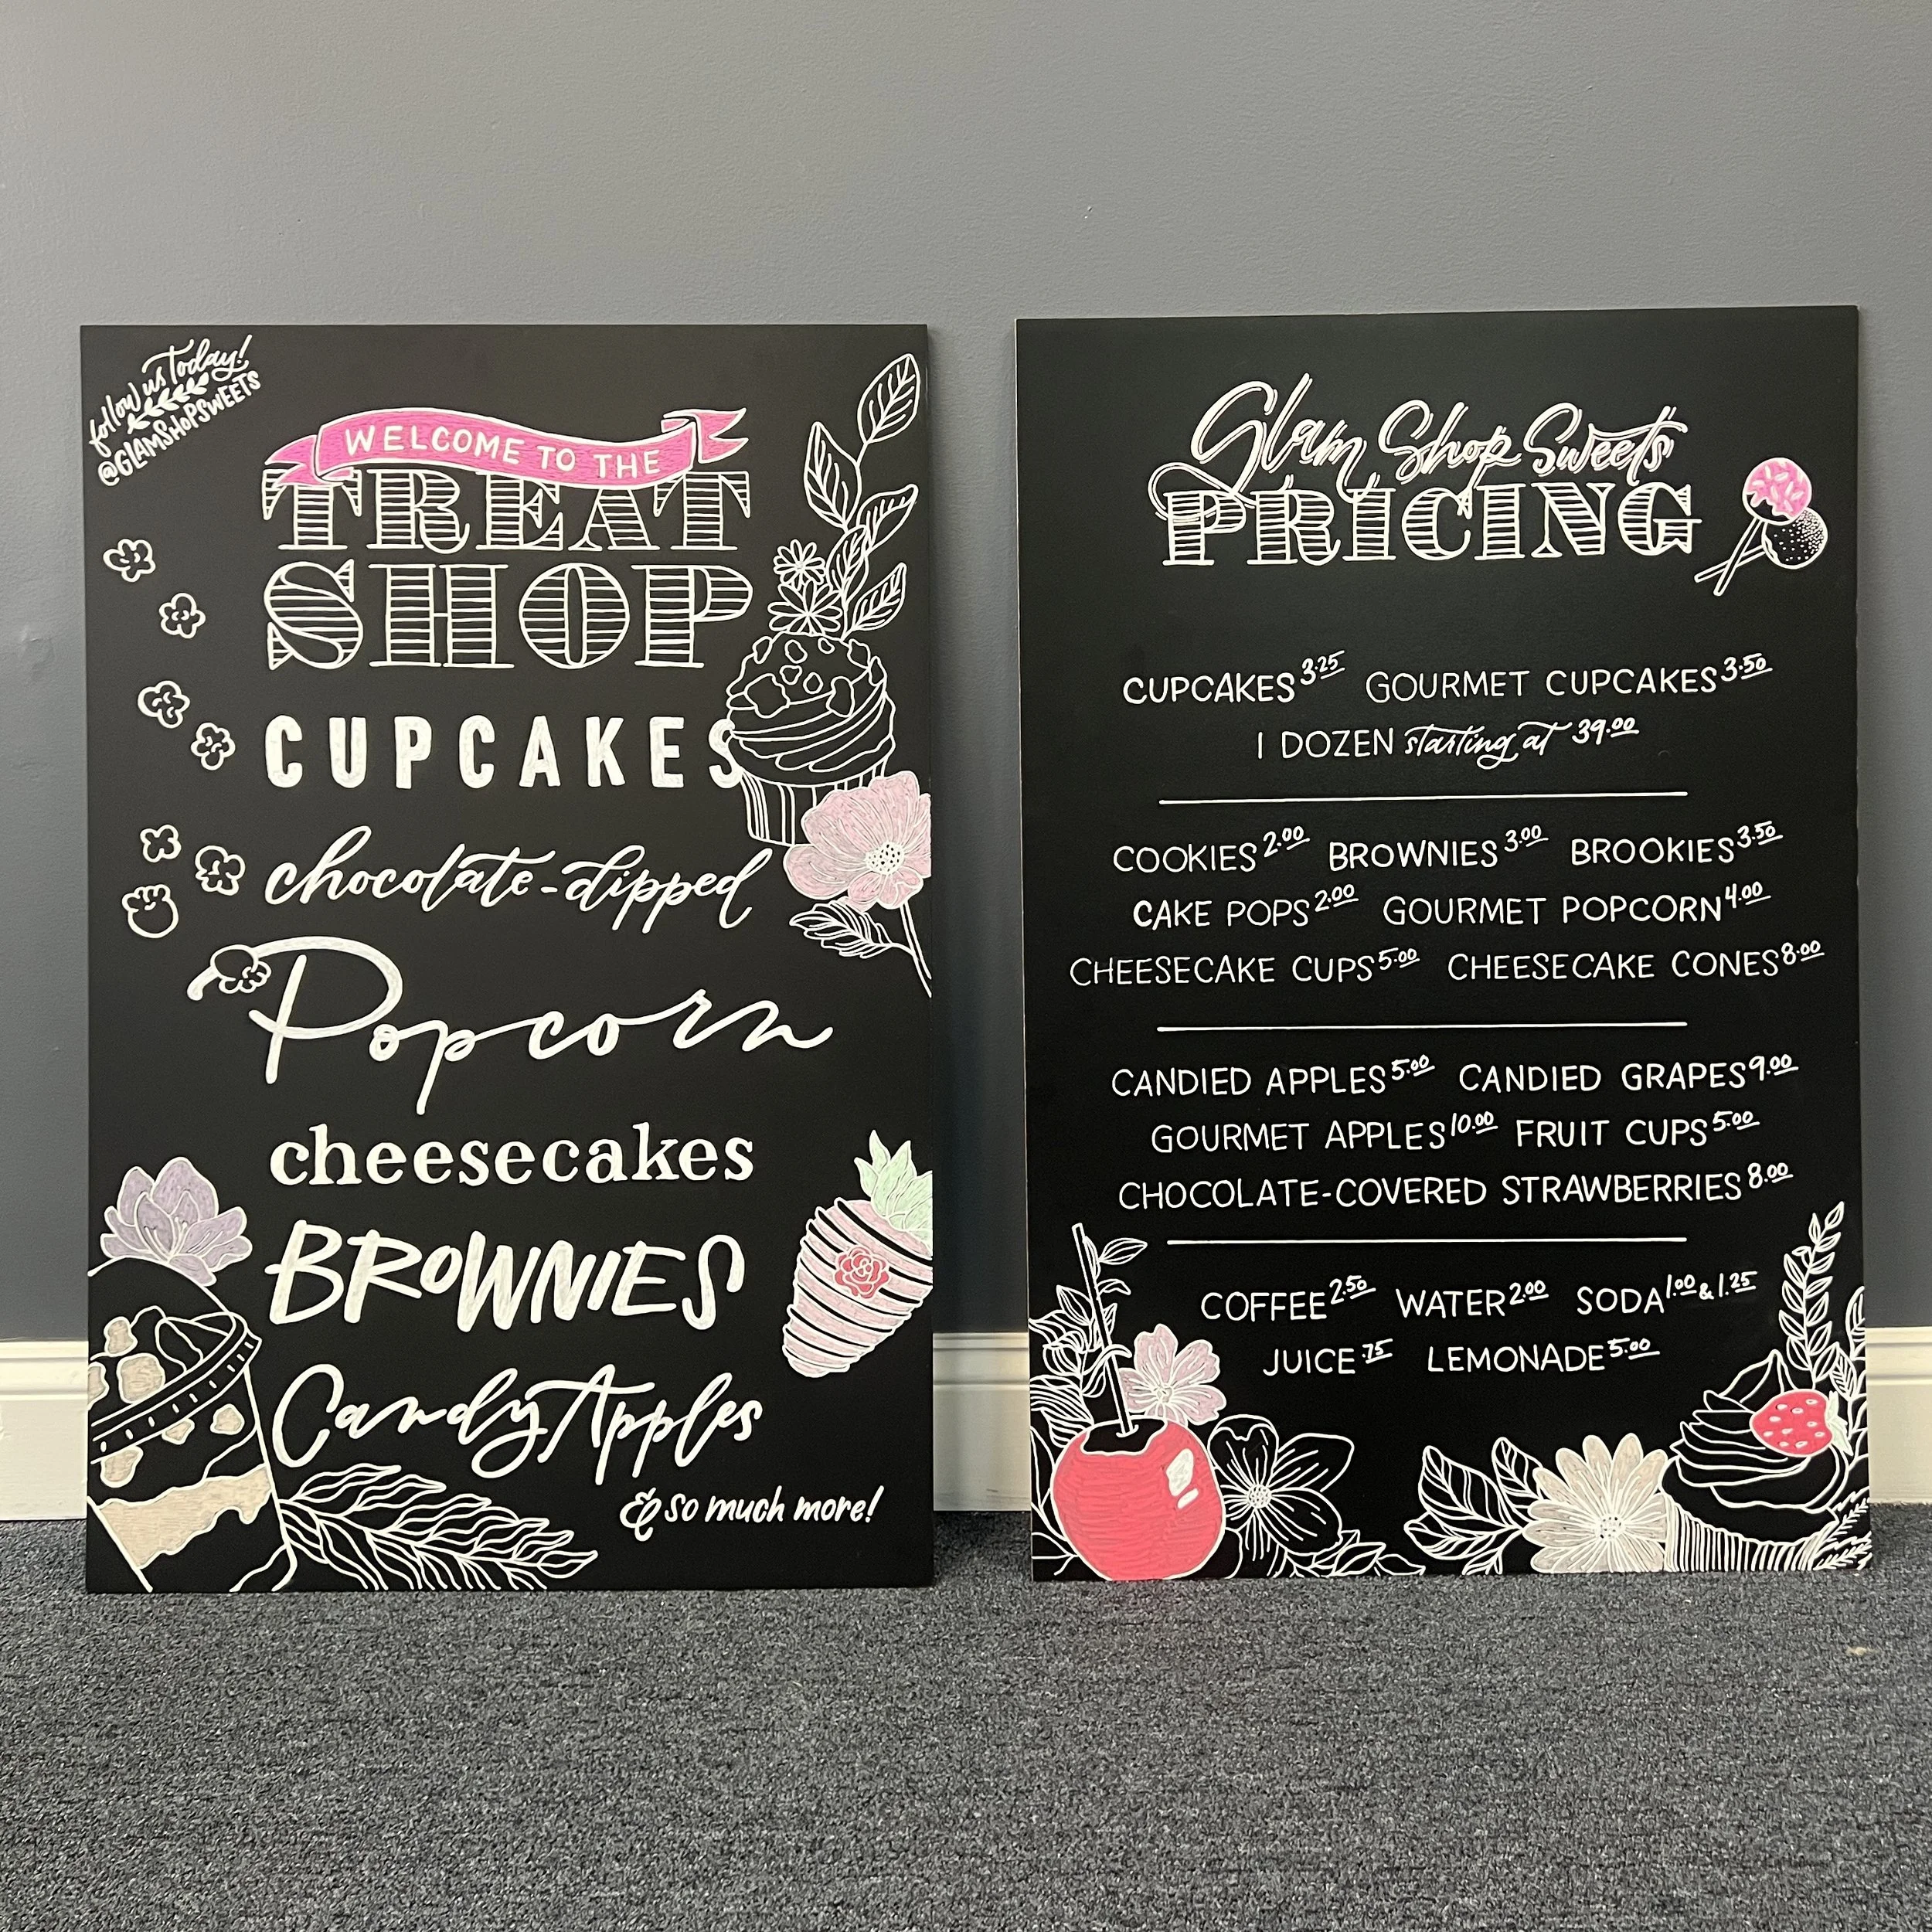 follow us Today!
@GLAMSHOPSWEETS
WELCOME TO THE
TREAT
SHOP
CUPCAKES
chocolate-dipped
Popcorn
cheesecakes
BROWNIES
Candy Apples
& so much more!
Glam Shop Sweets
PRICING
CUPCAKES 3.25 GOURMET CUPCAKES 3.50
1 DOZEN starting at 39.00
COOKIES 2.00 BROWNIES 3.00 BROOKIES 3.50
CAKE POPS 2.00 GOURMET POPCORN 4.00
CHEESECAKE CUPS 5.00 CHEESECAKE CONES 8.00
CANDIED APPLES 5.00 CANDIED GRAPES 9.00
GOURMET APPLES 10.00 FRUIT CUPS 5.00
CHOCOLATE-COVERED STRAWBERRIES 8.00
COFFEE 2.50 WATER 2.00 SODA 1.00 & 1.25
JUICE .75 LEMONADE 5.00